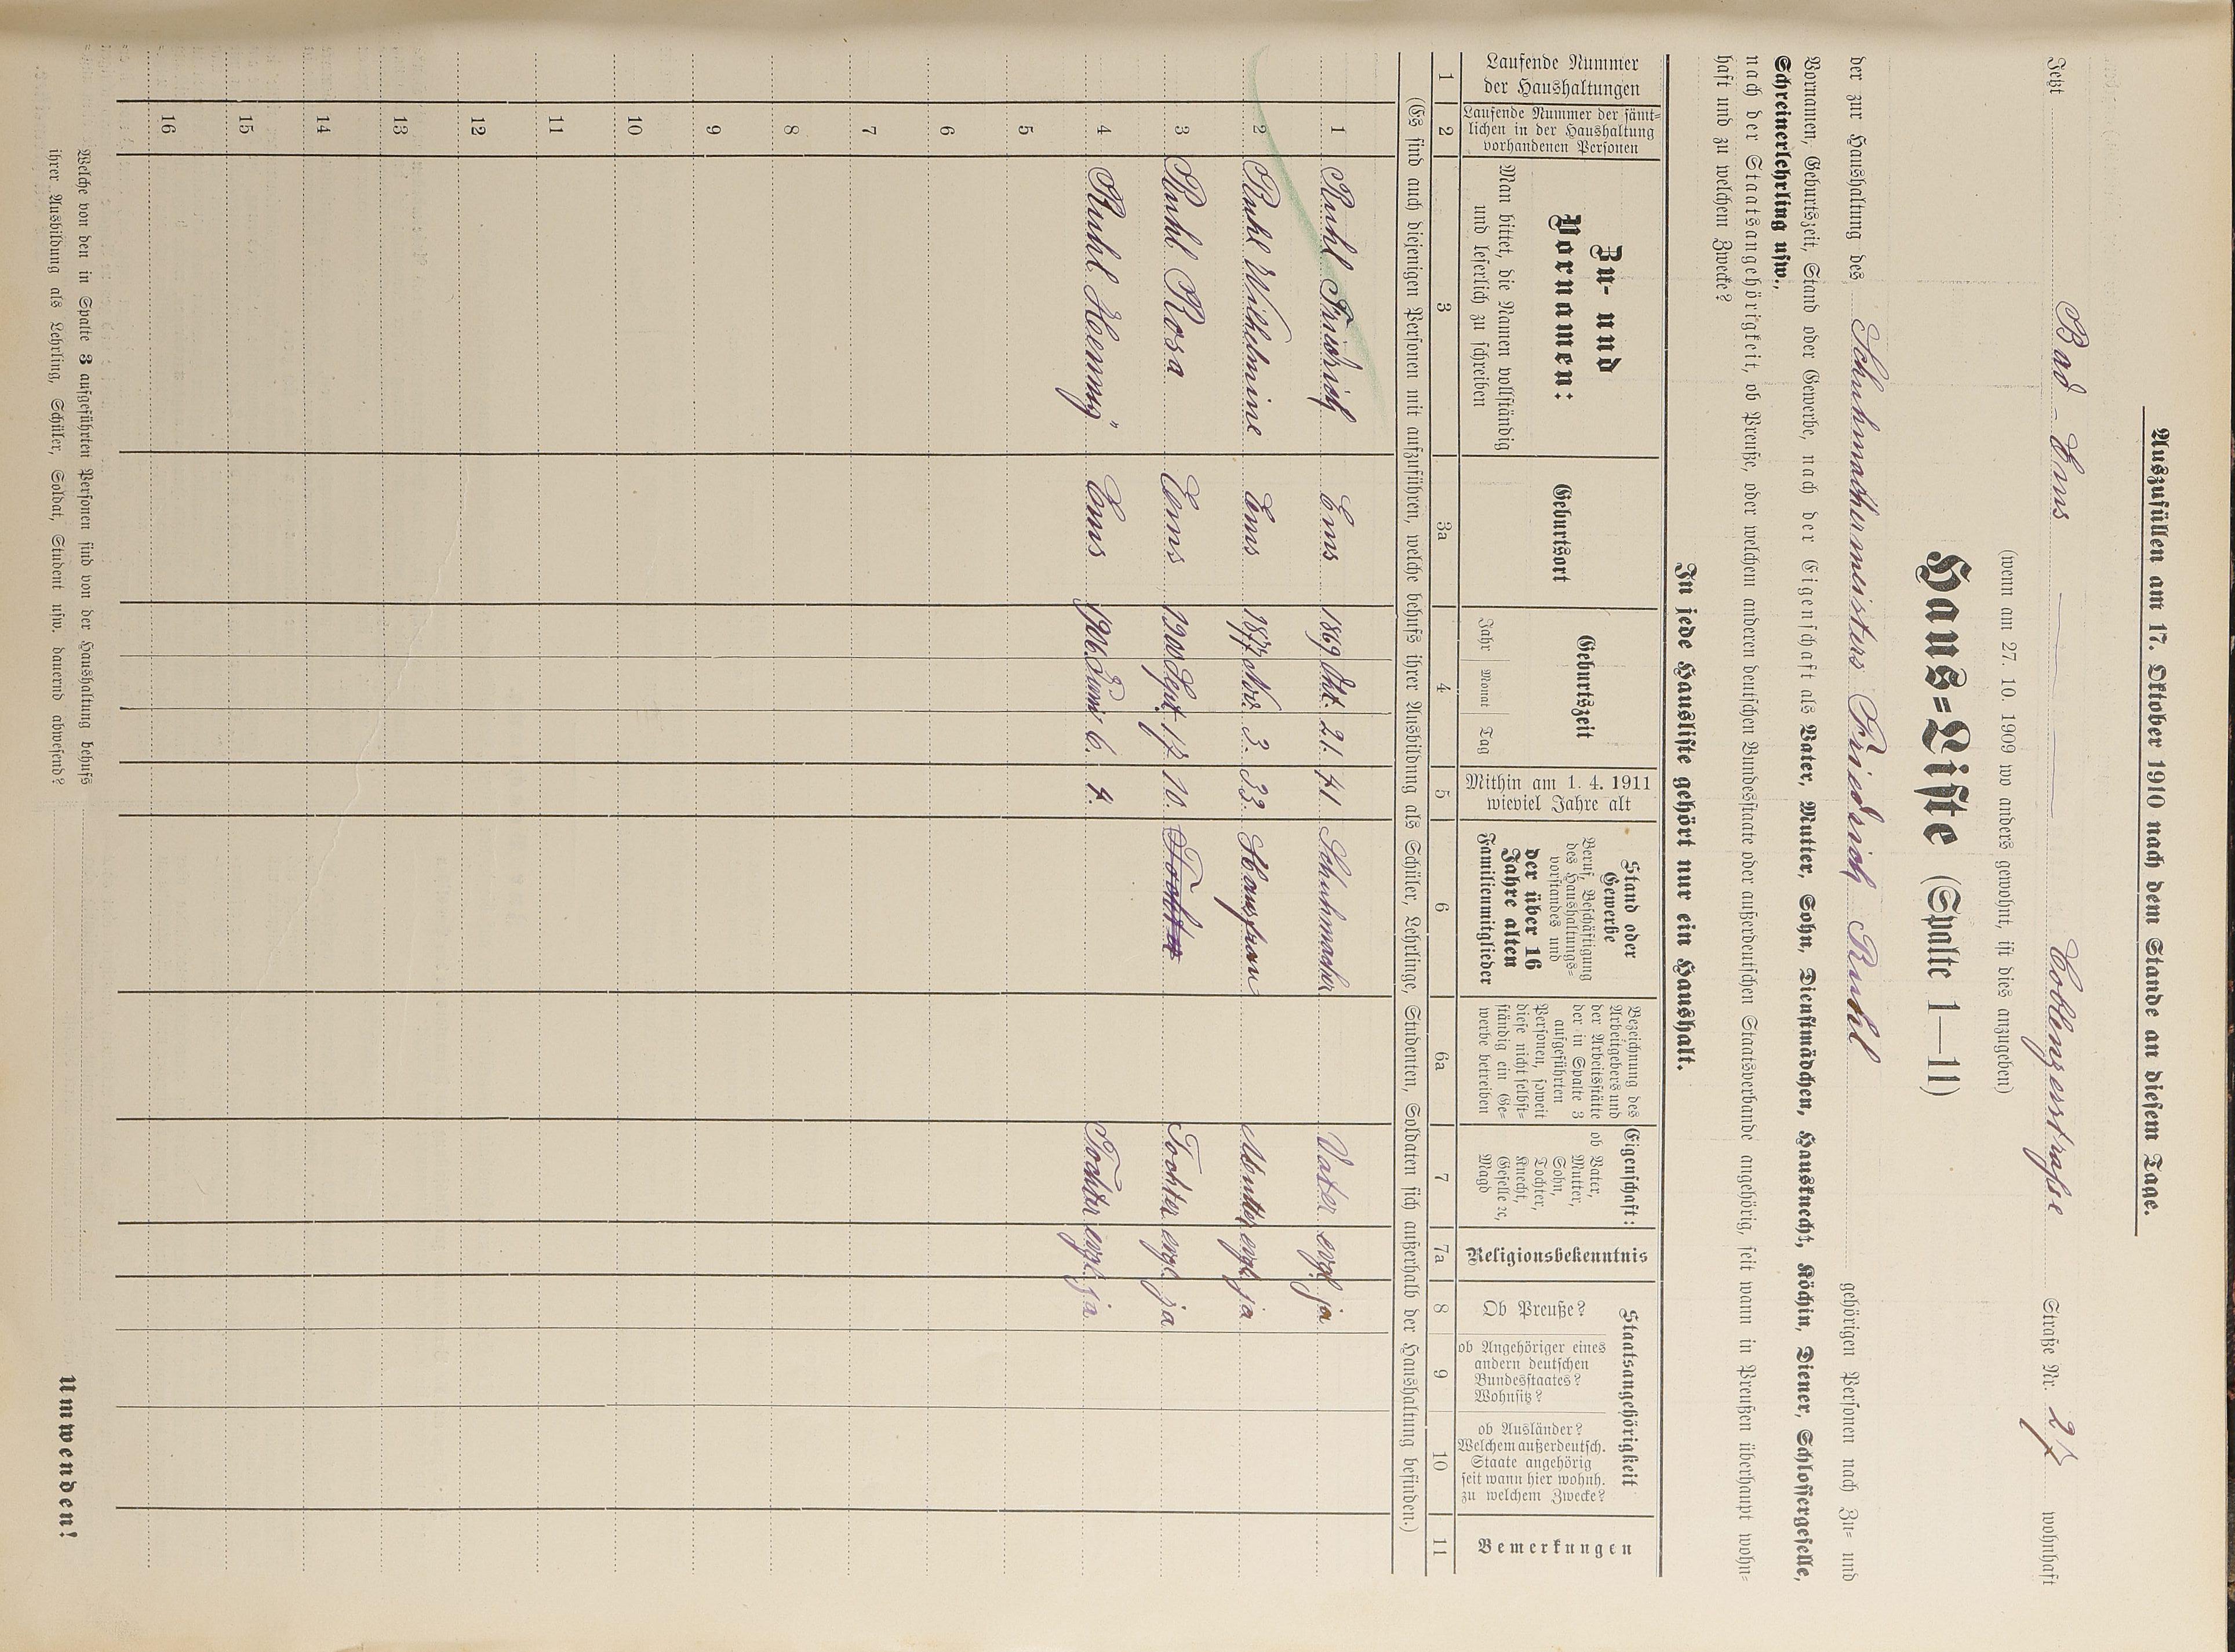 Auszufüllen am 17. Oktober 1910 nach dem Stande an diesem Tage.
Jetzt Bad-Ems Coblenzerstraße Straße Nr. 27 wohnhaft
(wenn am 27. 10. 1909 wo anders gewohnt, ist dies anzugeben)
Haus-Liste (Spalte 1—11)
der zur Haushaltung des Schuhmachermeisters Friedrich Ruhl gehörigen Personen nach Zu- und
Vornamen, Geburtszeit, Stand oder Gewerbe, nach der Eigenschaft als Vater, Mutter, Sohn, Dienstmädchen, Hausknecht, Köchin, Diener, Schlossergeselle,
Schreinerlehrling usw.,
nach der Staatsangehörigkeit, ob Preuße, oder welchem anderen deutschen Bundesstaate oder außerdeutschen Staatsverbande angehörig, seit wann in Preußen überhaupt wohn-
haft und zu welchem Zwecke?
In jede Hausliste gehört nur ein Haushalt.
Laufende Nummer
der Haushaltungen
Laufende Nummer der sämt-
lichen in der Haushaltung
vorhandenen Personen
Zu- und
Vornamen:
Man bittet, die Namen vollständig
und leserlich zu schreiben
Geburtsort
Geburtszeit
Jahr Monat Tag
Mithin am 1. 4. 1911
wieviel Jahre alt
Stand oder
Gewerbe
Beruf, Beschäftigung
des Haushaltungs-
vorstandes und
der über 16
Jahre alten
Familienmitglieder
Bezeichnung des
Arbeitgebers und
der Arbeitsstätte
der in Spalte 3
aufgeführten
Personen, soweit
diese nicht selbst-
ständig ein Ge-
werbe betreiben
Eigenschaft:
ob Vater,
Mutter,
Sohn,
Tochter,
Knecht,
Geselle ꝛc,
Magd
Religionsbekenntnis
Staatsangehörigkeit
Ob Preuße?
ob Angehöriger eines
andern deutschen
Bundesstaates?
Wohnsitz?
ob Ausländer?
Welchem außerdeutsch.
Staate angehörig
seit wann hier wohnh.
zu welchem Zwecke?
Bemerkungen
1 2 3 3a 4 5 6 6a 7 7a 8 9 10 11
(Es sind auch diejenigen Personen mit aufzuführen, welche behufs ihrer Ausbildung als Schüler, Lehrlinge, Studenten, Soldaten sich außerhalb der Haushaltung befinden.)
1 Ruhl Friedrich Ems 1869 Okt. 21. 41. Schuhmacher Vater evgl. ja
2 Ruhl Wilhelmine Ems 1877 Nov. 3. 33. Hausfrau Mutter evgl. ja
3 Ruhl Rosa Ems 1900 Sept. 17. 10. Tochter Tochter evgl. ja
4 Ruhl Henny Ems 1906. Juni 6. 4. Tochter evgl. ja
5
6
7
8
9
10
11
12
13
14
15
16
Welche von den in Spalte 3 aufgeführten Personen sind von der Haushaltung behufs
ihrer Ausbildung als Lehrling, Schüler, Soldat, Student usw. dauernd abwesend?
Umwenden!